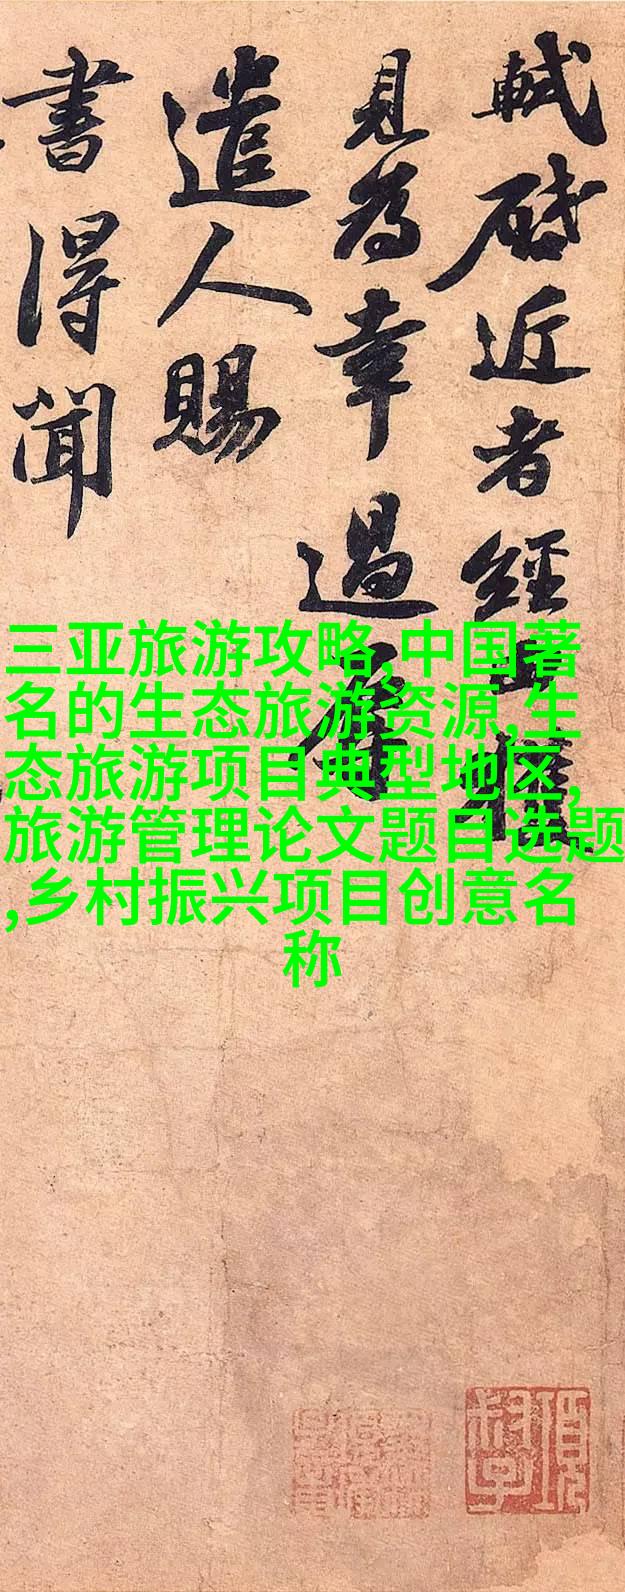 軾啟近者經由獲
見為幸過辱
遣人賜
書得聞
三亚旅游攻略,中国著
名的生态旅游资源,生
态旅游项目典型地区,
旅游管理论文题目选题
,乡村振兴项目创意名
称